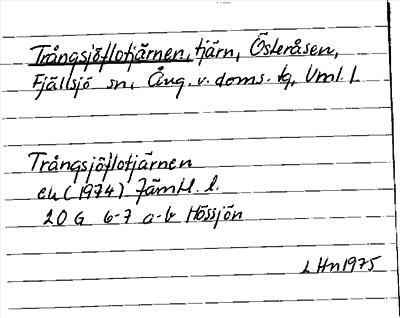 Trångsjöflotjärnen, tjärn, Österåsen,
Fjällsjö sn, Ång. v. doms. tg, Vnl. l.
Trångsjöflotjärnen
ek (1974) Jämtl. l.
20 G 6-7 a-b Hössjön
L Hn 1975